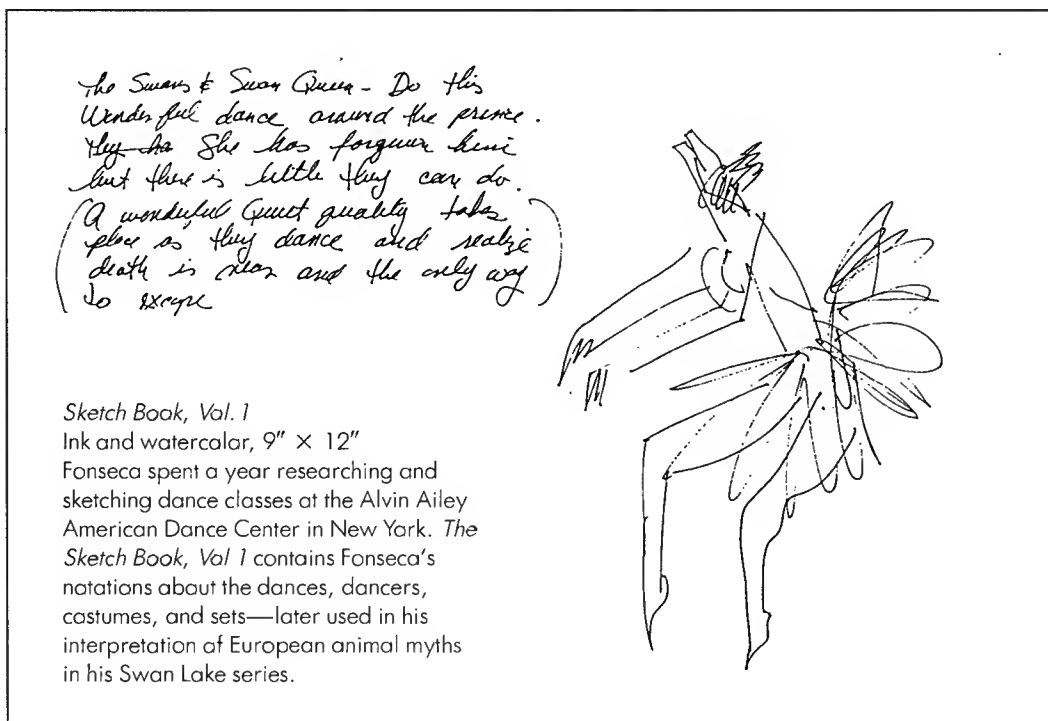 The Swans & Swan Queen - Do this
Wonderful dance around the prince.
They ha She has forgiven him
but there is little they can do.
(A wonderful Quiet quality takes
place as they dance and realize
death is near and the only way
to escape)
Sketch Book, Vol. 1
Ink and watercalar, 9" × 12"
Fonseca spent a year researching and
sketching dance classes at the Alvin Ailey
American Dance Center in New York. The
Sketch Book, Vol 1 contains Fonseca's
notations about the dances, dancers,
costumes, and sets—later used in his
interpretation of European animal myths
in his Swan Lake series.